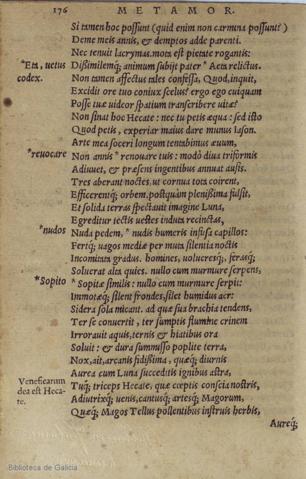 176 METAMOR.
Si tamen hoc possunt (quid enim non carmina possunt?)
Deme meis annis, & demptos adde parenti.
Nec tenuit lacrymas. mota est pietate rogantis:
*Eta, uetus codex.
Dissimilemq; animum subijt pater *Aeta relictus.
Non tamen affectus tales confessa, Quod, inquit,
Excidit ore tuo coniux scelus? ergo ego cuiquam
Posse tuæ uideor spatium transcribere uitæ?
Non sinat hoc Hecate: nec tu petis æqua: sed isto
Quod petis, experiar maius dare munus Iason.
Arte mea soceri longum tentabimus æuum,
*reuocare
Non annis *renouare tuis: modò diua triformis
Adiuuet, & præsens ingentibus annuat ausis.
Tres aberant noctes, ut cornua tota coirent,
Efficerentq; orbem. postquàm plenissima fulsit,
Et solida terras spectauit imagine Luna,
Egreditur tectis uestes induta recinctas,
*nudos
Nuda pedem, *nudis humeris infusa capillos:
Fertq; uagos mediæ per muta silentia noctis
Incomitata gradus. homines, uolucresq;, ferasq;
Soluerat alta quies. nullo cum murmure serpens,
*Sopito
*Sopitæ similis: nullo cum murmure serpit:
Immotæq; silent frondes, silet humidus aer:
Sidera sola micant. ad quæ sua brachia tendens,
Ter se conuertit, ter sumptis flumine crinem
Irrorauit aquis, ternis & hiatibus ora
Soluit: & dura summisso poplite terra,
Nox, ait, arcanis fidissima, quæq; diurnis
Aurea cum Luna succeditis ignibus astra,
Veneficarum dea est Hecate.
Tuq; triceps Hecate, quæ cœptis conscia nostris,
Adiutrixq; uenis, cantusq; artesq; Magorum,
Quæq; Magos Tellus pollentibus instruis herbis,
Aureq;
Biblioteca de Galicia